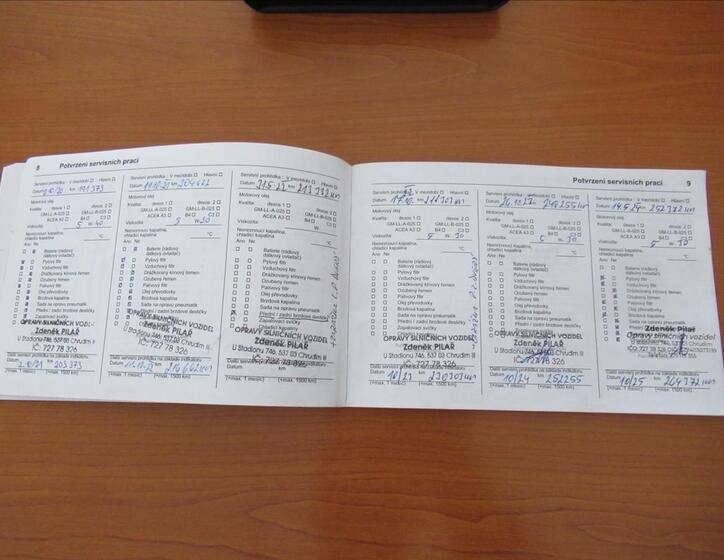 8 Potvrzení servisních prací
Servisní prohlídka - V mezidobí Hlavní
Datum km 191 373
Motorový olej
Kvalita: dexos 1 dexos 2
GM-LL-A-025 GM-LL-B-025
ACEA A3 B4 C3
Viskozita: 5 W 40
Nemrznoucí kapalina,
chladicí kapalina °C
Ano Ne
Baterie (rádiový
dálkový ovladač)
Pylový filtr
Vzduchový filtr
Drážkovaný klínový řemen
Ozubený řemen
Olej převodovky
Brzdová kapalina
Sada na opravu pneumatik
Přední / zadní brzdové destičky
Zapalovací svíčky
OPRAVY SILNIČNÍCH VOZIDEL
Zdeněk PILAŘ
U Stadionu 746, 537 03 Chrudim II
IČ: 727 78 326
Další servisní prohlídka na základě indikátoru
Datum km 205 373
(+max. 1 měsíc) (+max. 1500 km)
Servisní prohlídka - V mezidobí Hlavní
Datum km 204 662
Motorový olej
Kvalita: dexos 1 dexos 2
GM-LL-A-025 GM-LL-B-025
ACEA A3 B4 C3
Viskozita: 5
Nemrznoucí kapalina,
chladicí kapalina °C
Ano Ne
Baterie (rádiový
dálkový ovladač)
Pylový filtr
Vzduchový filtr
Drážkovaný klínový řemen
Ozubený řemen
Olej převodovky
Brzdová kapalina
Sada na opravu pneumatik
Přední / zadní brzdové destičky
OPRAVY SILNIČNÍCH VOZIDEL
Zdeněk PILAŘ
U Stadionu 746, 537 03 Chrudim II
IČ: 727 78 326
Další servisní prohlídka na základě indikátoru
Datum km 216 662 km
(+max. 1 měsíc) (+max. 1500 km)
Servisní prohlídka - V mezidobí Hlavní
Datum km
Motorový olej
Kvalita: dexos 1 dexos 2
GM-LL-A-025 GM-LL-B-025
ACEA A3 B4 C3
Viskozita: W
Nemrznoucí kapalina,
chladicí kapalina °C
Ano Ne
Baterie (rádiový
dálkový ovladač)
Pylový filtr
Vzduchový filtr
Drážkovaný klínový řemen
Ozubený řemen
Olej převodovky
Brzdová kapalina
Sada na opravu pneumatik
Přední / zadní brzdové destičky
Zapalovací svíčky
OPRAVY SILNIČNÍCH VOZIDEL
Zdeněk PILAŘ
U Stadionu 746, 537 03 Chrudim II
IČ: 727 78 326
Další servisní prohlídka na základě indikátoru
Datum km
(+max. 1 měsíc) (+max. 1500 km)
Potvrzení servisních prací 9
Servisní prohlídka - V mezidobí Hlavní
Datum km
Motorový olej
Kvalita: dexos 1 dexos 2
GM-LL-A-025 GM-LL-B-025
ACEA A3 B4 C3
Viskozita: 5 W 30
Nemrznoucí kapalina,
chladicí kapalina °C
Ano Ne
Baterie (rádiový
dálkový ovladač)
Pylový filtr
Vzduchový filtr
Drážkovaný klínový řemen
Ozubený řemen
Olej převodovky
Brzdová kapalina
Sada na opravu pneumatik
Přední / zadní brzdové destičky
Zapalovací svíčky
OPRAVY SILNIČNÍCH VOZIDEL
Zdeněk PILAŘ
U Stadionu 746, 537 03 Chrudim II
IČ: 727 78 326
Další servisní prohlídka na základě indikátoru
Datum 10/23 km
(+max. 1 měsíc) (+max. 1500 km)
Servisní prohlídka - V mezidobí Hlavní
Datum km 240 255 km
Motorový olej
Kvalita: dexos 1 dexos 2
GM-LL-A-025 GM-LL-B-025
ACEA A3 B4 C3
Viskozita: 5 W 30
Nemrznoucí kapalina,
chladicí kapalina °C
Ano Ne
Baterie (rádiový
dálkový ovladač)
Pylový filtr
Vzduchový filtr
Drážkovaný klínový řemen
Ozubený řemen
Olej převodovky
Brzdová kapalina
Sada na opravu pneumatik
Přední / zadní brzdové destičky
OPRAVY SILNIČNÍCH VOZIDEL
Zdeněk PILAŘ
U Stadionu 746, 537 03 Chrudim II
Další servisní prohlídka na základě indikátoru
Datum 10/24 km 252255
(+max. 1 měsíc) (+max. 1500 km)
Servisní prohlídka - V mezidobí Hlavní
Datum km 252 372 km
Motorový olej
Kvalita: dexos 1 dexos 2
GM-LL-A-025 GM-LL-B-025
ACEA A3 B4 C3
Viskozita: 5 W 30
Nemrznoucí kapalina,
chladicí kapalina °C
Ano Ne
Baterie (rádiový
dálkový ovladač)
Pylový filtr
Vzduchový filtr
Drážkovaný klínový řemen
Ozubený řemen
Olej převodovky
Brzdová kapalina
Zdeněk Pilař
Opravy silničních vozidel
U Stadionu 746, 537 03 Chrudim
Další servisní prohlídka na základě indikátoru
Datum 10/25 km 264 372 km
(+max. 1 měsíc) (+max. 1500 km)